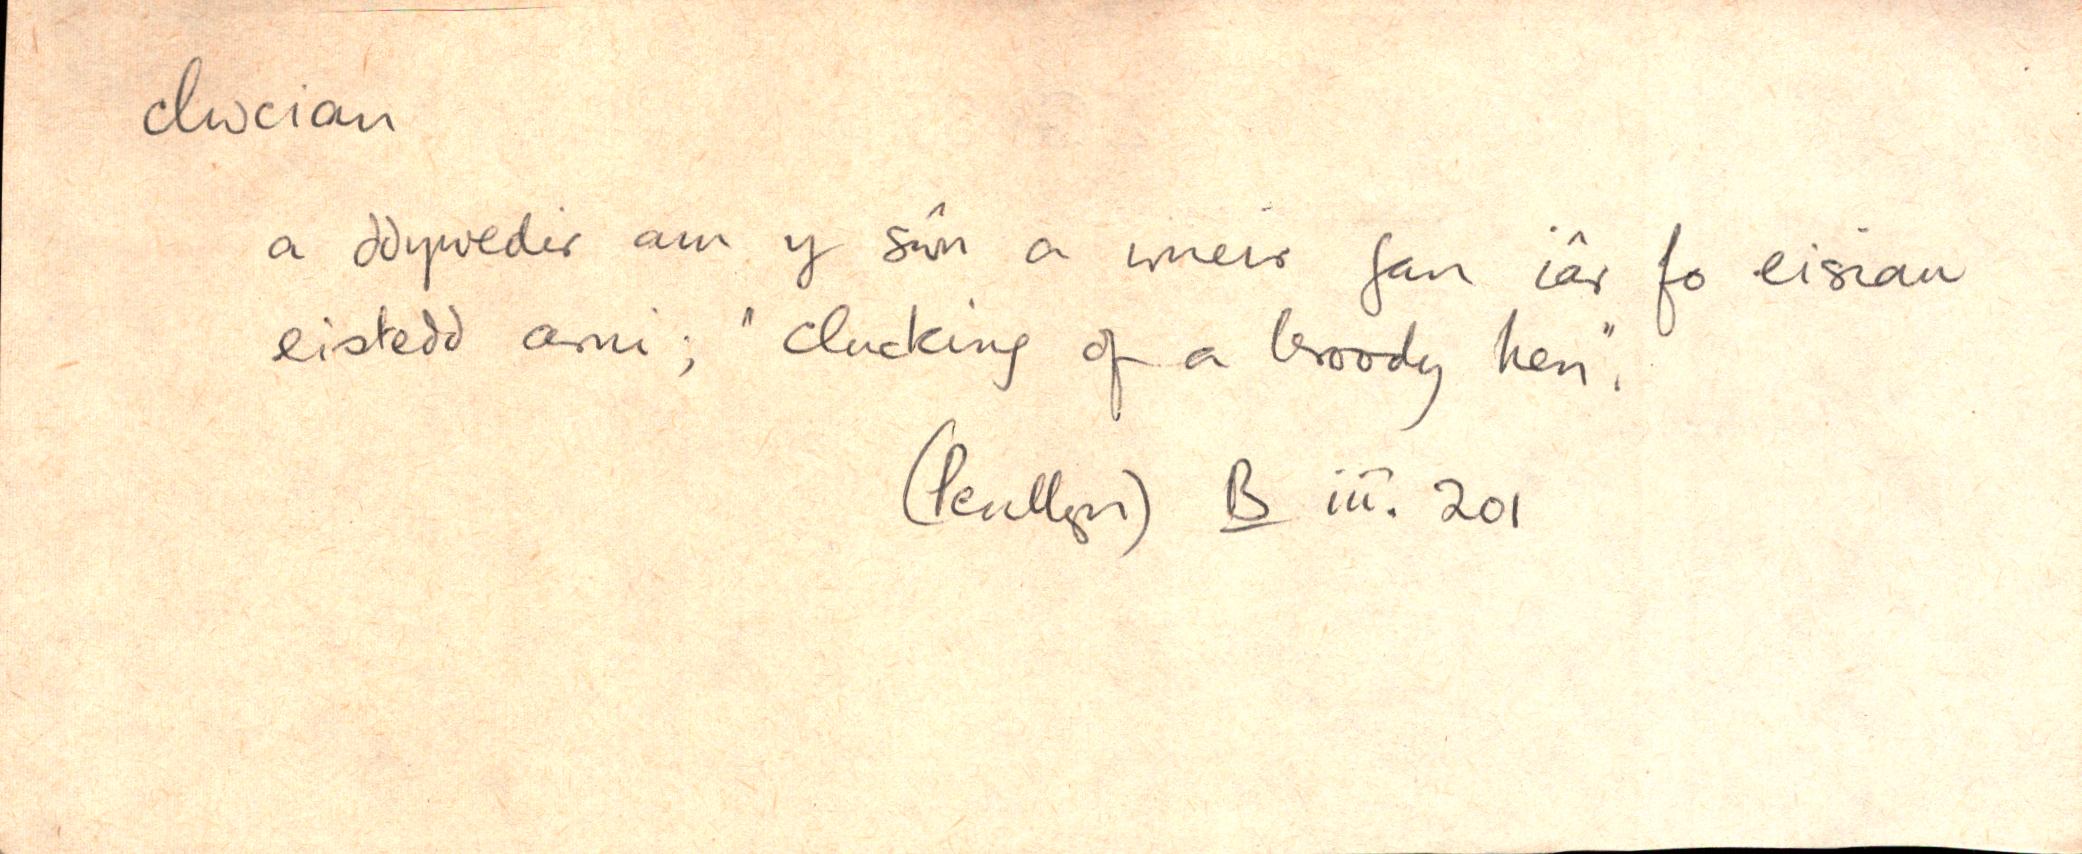 clwcian
a ddywedir am y sŵn a wneir gan iâr fo eisiau
eistedd arni; "clucking of a broody hen".
(Penllyn) B iii. 201